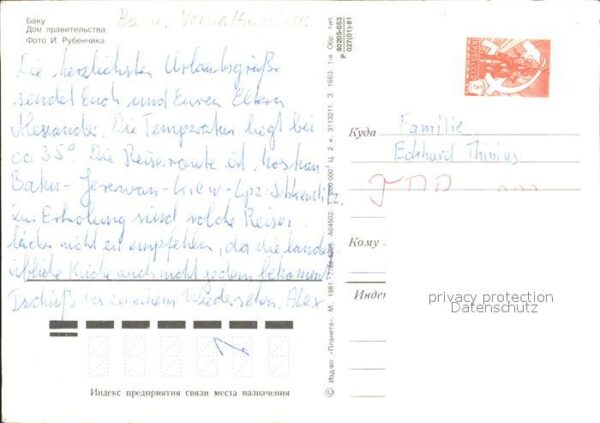 Баку
Дом правительства
Фото И. Рубенчика
Die herzlichsten Urlaubsgrüße
sendet Euch und Euren Eltern
Alexander. Die Temperatur liegt bei
ca 35°. Die Reiseroute ist Moskau
Baku - Jerewan - Kiew - Lpz.-Schkeuditz.
Zur Erholung sind solche Reisen
leider nicht zu empfehlen, da die landes-
übliche Küche auch nicht jedem bekommt.
Tschüß bis zu einem Wiedersehn. Alex
Индекс предприятия связи места назначения
© Изд-во «Планета». М. 1981
1-я Обр. тип.
Р 80205-053
027(01)-81
Куда
Familie
Eckhard Thinius
Кому
Индекс
privacy protection
Datenschutz